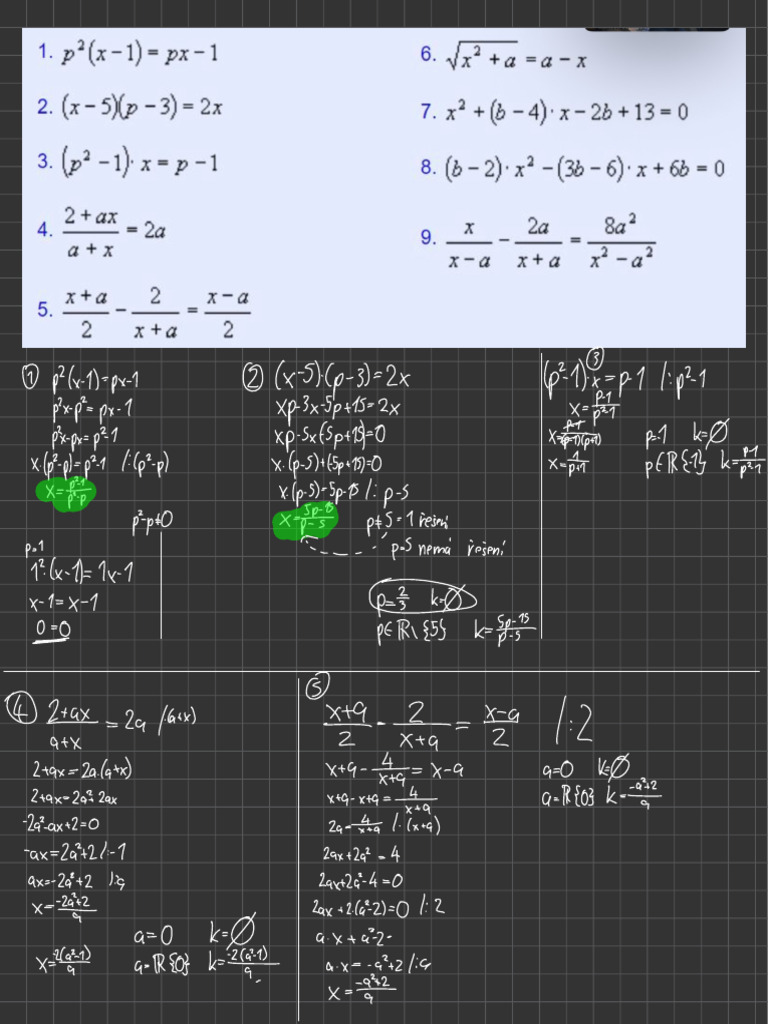 1. p²(x − 1) = px − 1
2. (x − 5)(p − 3) = 2x
3. (p² − 1)· x = p − 1
4. (2 + ax)/(a + x) = 2a
5. (x + a)/2 − 2/(x + a) = (x − a)/2
6. √(x² + a) = a − x
7. x² + (b − 4)· x − 2b + 13 = 0
8. (b − 2)· x² − (3b − 6)· x + 6b = 0
9. x/(x − a) − 2a/(x + a) = 8a²/(x² − a²)
① p²(x-1)=px-1
p²x-p²=px-1
p²x-px=p²-1
x·(p²-p)=p²-1 /:(p²-p)
x=(p²-1)/(p²-p)
p²-p≠0
p=1
1²·(x-1)=1x-1
x-1=x-1
0=0
② (x-5)·(p-3)=2x
xp-3x-5p+15=2x
xp-5x(5p+15)=0
x·(p-5)+(5p+15)=0
x·(p-5)=5p-15 /: p-5
x=(5p-15)/(p-5)
p≠5=1 řešení
p=5 nemá řešení
p=2/3 k=∅
p∈ℝ\{5} k=(5p-15)/(p-5)
③
(p²-1)·x=p-1 /:p²-1
x=(p-1)/(p²-1)
x=(p-1)/((p-1)(p+1))
x=1/(p+1)
p=-1 k=∅
p∈ℝ{-1} k=(p-1)/(p²-1)
④ (2+ax)/(a+x)=2a /·(a+x)
2+ax=2a·(a+x)
2+ax=2a²+2ax
-2a²-ax+2=0
-ax=2a²+2 /:-1
ax=-2a²+2 /:a
x=(-2a²+2)/a
x=-2(a²-1)/a
a=0 k=∅
a=ℝ{0} k=-2(a²-1)/a
⑤
(x+a)/2 - 2/(x+a) = (x-a)/2 /:2
x+a-4/(x+a)=x-a
x+a-x+a=4/(x+a)
2a=4/(x+a) /·(x+a)
2ax+2a²=4
2ax+2a²-4=0
2ax+2·(a²-2)=0 /:2
a·x+a²-2-
a·x=-a²+2 /:a
x=(-a²+2)/a
a=0 k=∅
a=ℝ{0} k=(-a²+2)/a